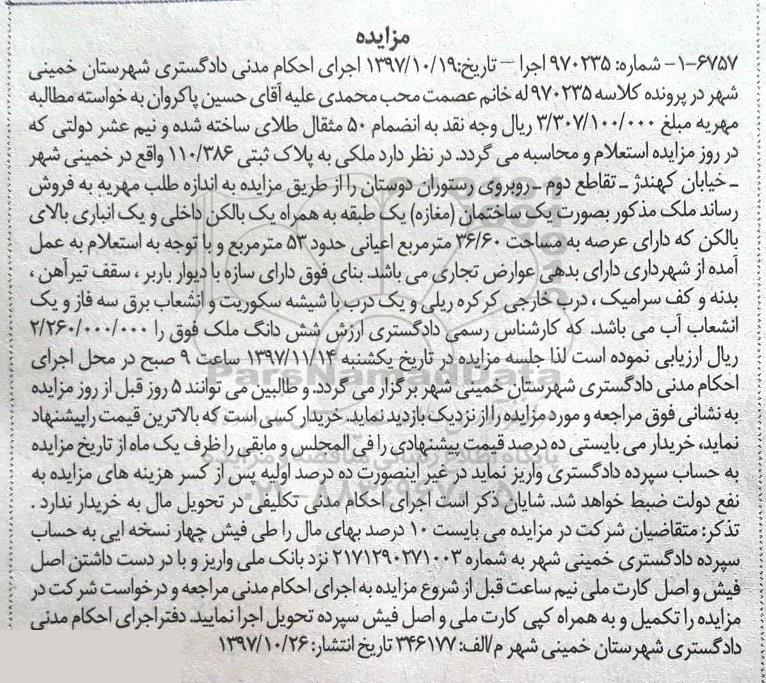 مزایده
۱-۶۷۵۷- شماره: ۹۷۰۲۳۵ اجرا – تاریخ:۱۳۹۷/۱۰/۱۹ اجرای احکام مدنی دادگستری شهرستان خمینی
شهر در پرونده کلاسه ۹۷۰۲۳۵ له خانم عصمت محب محمدی علیه آقای حسین پاکروان به خواسته مطالبه
مهریه مبلغ ۳/۳۰۷/۱۰۰/۰۰۰ ریال وجه نقد به انضمام ۵۰ مثقال طلای ساخته شده و نیم عشر دولتی که
در روز مزایده استعلام و محاسبه می گردد. در نظر دارد ملکی به پلاک ثبتی ۱۱۰/۳۸۶ واقع در خمینی شهر
ـ خیابان کهندژ ـ تقاطع دوم ـ روبروی رستوران دوستان را از طریق مزایده به اندازه طلب مهریه به فروش
رساند ملک مذکور بصورت یک ساختمان (مغازه) یک طبقه به همراه یک بالکن داخلی و یک انباری بالای
بالکن که دارای عرصه به مساحت ۳۶/۶۰ مترمربع اعیانی حدود ۵۳ مترمربع و با توجه به استعلام به عمل
آمده از شهرداری دارای بدهی عوارض تجاری می باشد. بنای فوق دارای سازه با دیوار باربر ، سقف تیرآهن ،
بدنه و کف سرامیک ، درب خارجی کرکره ریلی و یک درب با شیشه سکوریت و انشعاب برق سه فاز و یک
انشعاب آب می باشد. که کارشناس رسمی دادگستری ارزش شش دانگ ملک فوق را ۲/۲۶۰/۰۰۰/۰۰۰
ریال ارزیابی نموده است لذا جلسه مزایده در تاریخ یکشنبه ۱۳۹۷/۱۱/۱۴ ساعت ۹ صبح در محل اجرای
احکام مدنی دادگستری شهرستان خمینی شهر برگزار می گردد. و طالبین می توانند ۵ روز قبل از روز مزایده
به نشانی فوق مراجعه و مورد مزایده را از نزدیک بازدید نماید. خریدار کسی است که بالاترین قیمت را پیشنهاد
نماید، خریدار می بایستی ده درصد قیمت پیشنهادی را فی المجلس و مابقی را ظرف یک ماه از تاریخ مزایده
به حساب سپرده دادگستری واریز نماید در غیر اینصورت ده درصد اولیه پس از کسر هزینه های مزایده به
نفع دولت ضبط خواهد شد. شایان ذکر است اجرای احکام مدنی تکلیفی در تحویل مال به خریدار ندارد .
تذکر: متقاضیان شرکت در مزایده می بایست ۱۰ درصد بهای مال را طی فیش چهار نسخه ایی به حساب
سپرده دادگستری خمینی شهر به شماره ۲۱۷۱۲۹۰۲۷۱۰۰۳ نزد بانک ملی واریز و با در دست داشتن اصل
فیش و اصل کارت ملی نیم ساعت قبل از شروع مزایده به اجرای احکام مدنی مراجعه و درخواست شرکت در
مزایده را تکمیل و به همراه کپی کارت ملی و اصل فیش سپرده تحویل اجرا نمایید. دفتر اجرای احکام مدنی
دادگستری شهرستان خمینی شهر م/الف: ۳۴۶۱۷۷ تاریخ انتشار: ۱۳۹۷/۱۰/۲۶
ParsNamadData